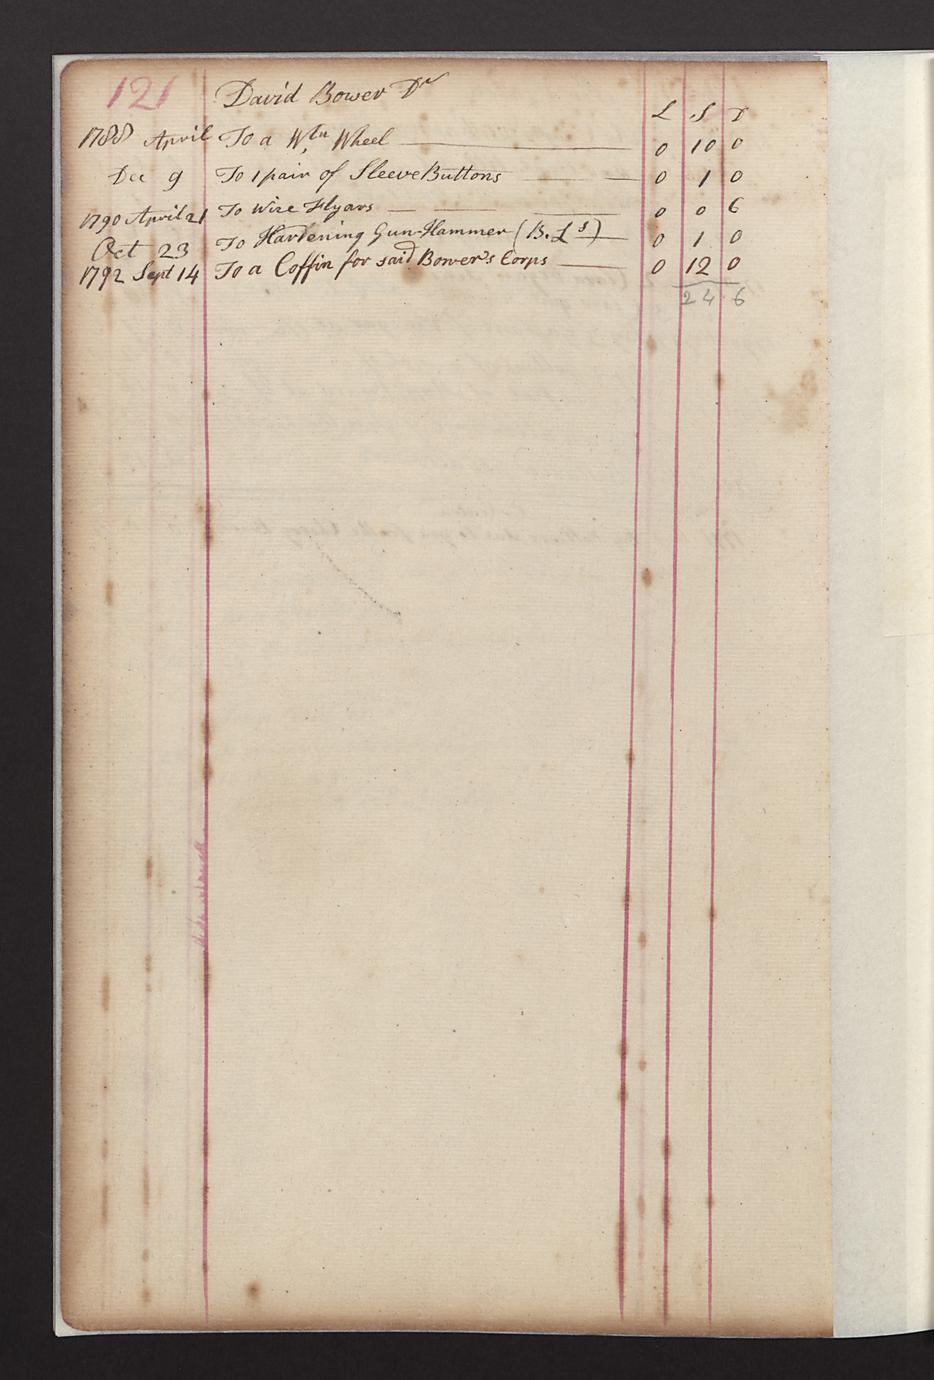 121 David Bower Dr
£ S D
1788 April To a Wln Wheel 0 10 0
Dec 9 To 1 pair of Sleeve Buttons 0 1 0
1790 April 21 To Wire Flyars 0 0 6
Oct 23 To Hardening Gun-Hammer (B. Ls) 0 1 0
1792 Sept 14 To a Coffin for said Bower's Corps 0 12 0
24 6